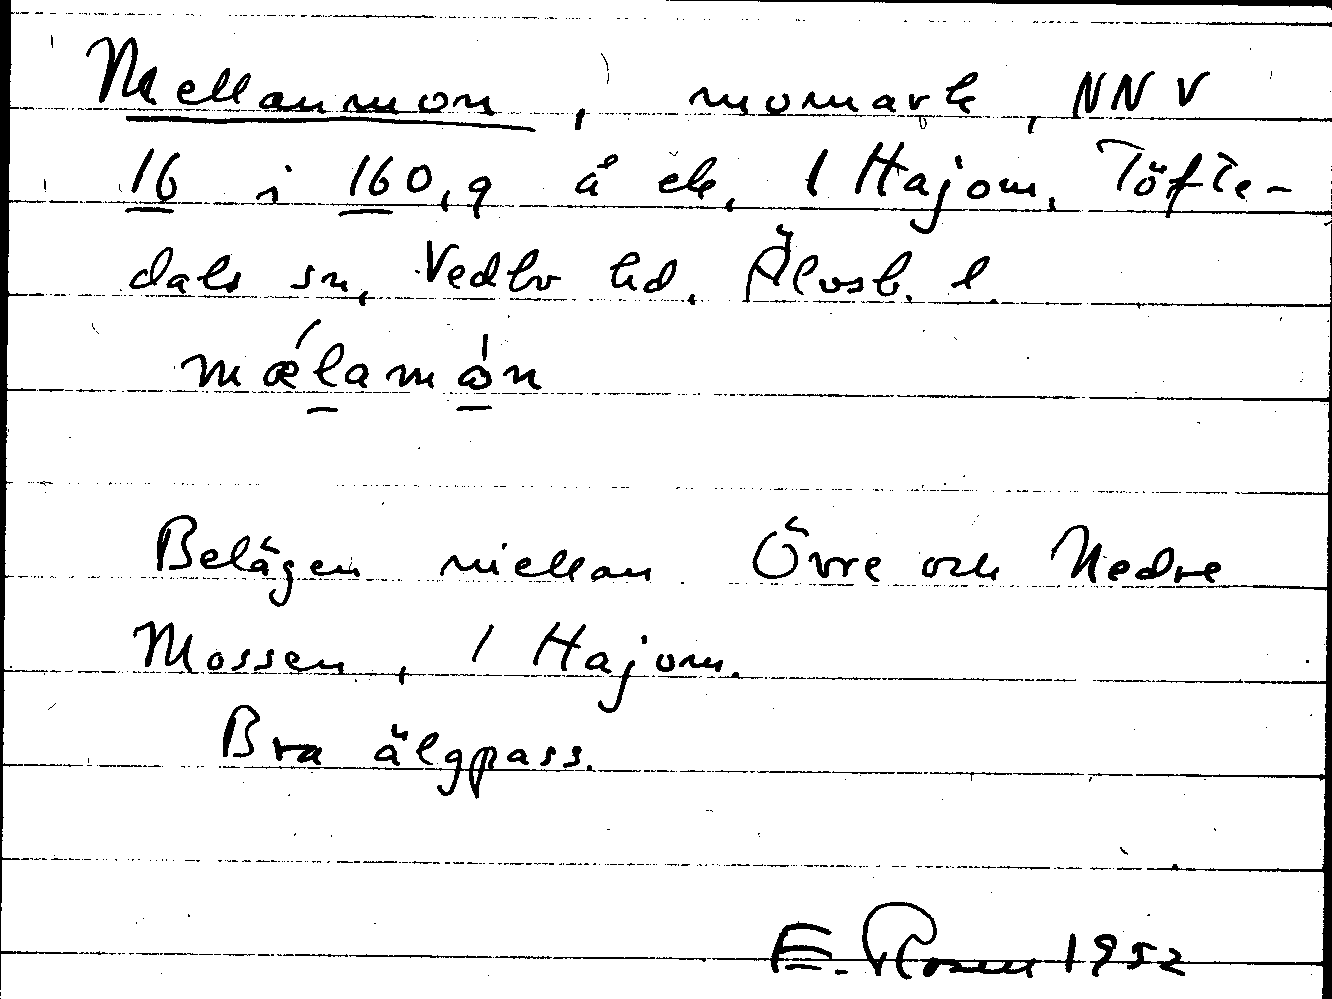 Mellanmon, momark, NNV
16 i 160,9 å ek, 1 Hajom, Töfte-
dals sn, Vedbo hd, Älvsb. l.
mǽlamån
Belägen mellan Övre och Nedre
Mossen, 1 Hajom.
Bra älgpass.
E. Rosen 1952